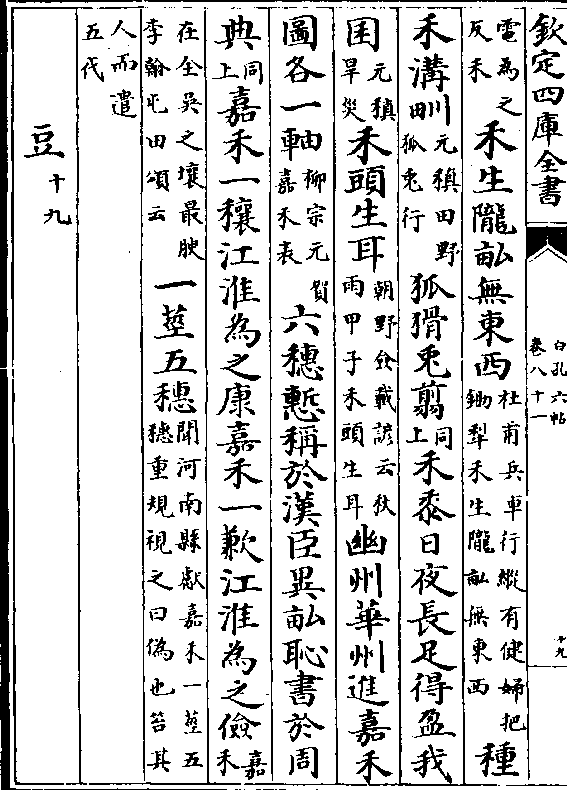 欽定四庫全書
白孔六帖
卷八十一
十九
電為之反禾禾生隴畝無東西杜甫兵車行縱有健婦把鋤犁禾生隴畝無東西種
禾溝甽元稹田野狐兎行狐猾兎翦同上禾黍日夜長足得盈我
囷元稹旱災禾頭生耳朝野僉載諺云秋雨甲子禾頭生耳幽州華州進嘉禾
圖各一軸柳宗元賀嘉禾表六穗慙稱於漢臣異畝恥書於周
典同上嘉禾一穰江淮為之康嘉禾一歉江淮為之儉嘉禾
在全吳之壤最腴李翰屯田頌云一莖五穗聞河南縣獻嘉禾一莖五穗重規視之曰偽也笞其
人而遣五代
豆十九